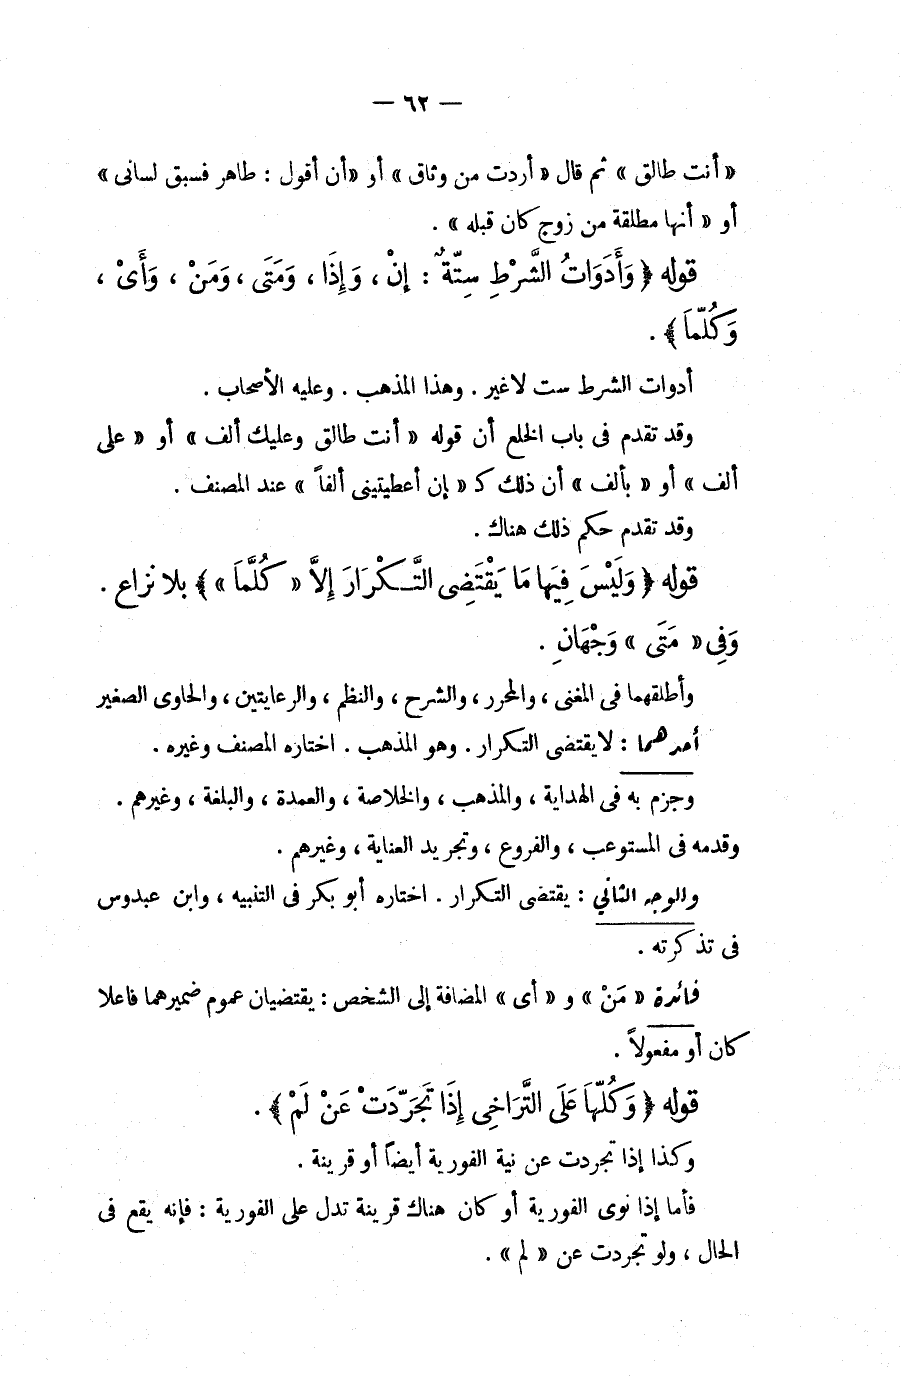 — ٦٢ —
« أنت طالق » ثم قال « أردت من وثاق » أو « أن أقول : طاهر فسبق لسانى »
أو « أنها مطلقة من زوج كان قبله » .
قوله ﴿ وَأَدَوَاتُ الشَّرْطِ سِتّةٌ : إِنْ ، وَإِذَا ، وَمَتَى ، وَمَنْ ، وَأَىْ ،
وَكُلّمَا ﴾ .
أدوات الشرط ست لاغير . وهذا المذهب . وعليه الأصحاب .
وقد تقدم فى باب الخلع أن قوله « أنت طالق وعليك ألف » أو « على
ألف » أو « بألف » أن ذلك كـ « إن أعطيتينى ألفاً » عند المصنف .
وقد تقدم حكم ذلك هناك .
قوله ﴿ وَلَيْسَ فِيَها مَا يَقْتَضِى التَّـكْرَارَ إِلاَّ « كُلَّمَا » ﴾ بلا نزاع .
وَفِى « مَتَى » وَجْهَانِ .
وأطلقهما فى المغنى ، والمحرر ، والشرح ، والنظم ، والرعايتين ، والحاوى الصغير
أحدهما : لايقتضى التكرار . وهو المذهب . اختاره المصنف وغيره .
وجزم به فى الهداية ، والمذهب ، والخلاصة ، والعمدة ، والبلغة ، وغيرهم .
وقدمه فى المستوعب ، والفروع ، وتجريد العناية ، وغيرهم .
والوجه الثانى : يقتضى التكرار . اختاره أبو بكر فى التنبيه ، وابن عبدوس
فى تذكرته .
فائدة « مَنْ » و « أى » المضافة إلى الشخص : يقتضيان عموم ضميرهما فاعلا
كان أو مفعولاً .
قوله ﴿ وَكُلّهَا عَلَى التَّرَاخِى إِذَا تَجَرّدَتْ عَنْ لَمْ ﴾ .
وكذا إذا تجردت عن نية الفورية أيضاً أو قرينة .
فأما إذا نوى الفورية أو كان هناك قرينة تدل على الفورية : فإنه يقع فى
الحال ، ولو تجردت عن « لم » .